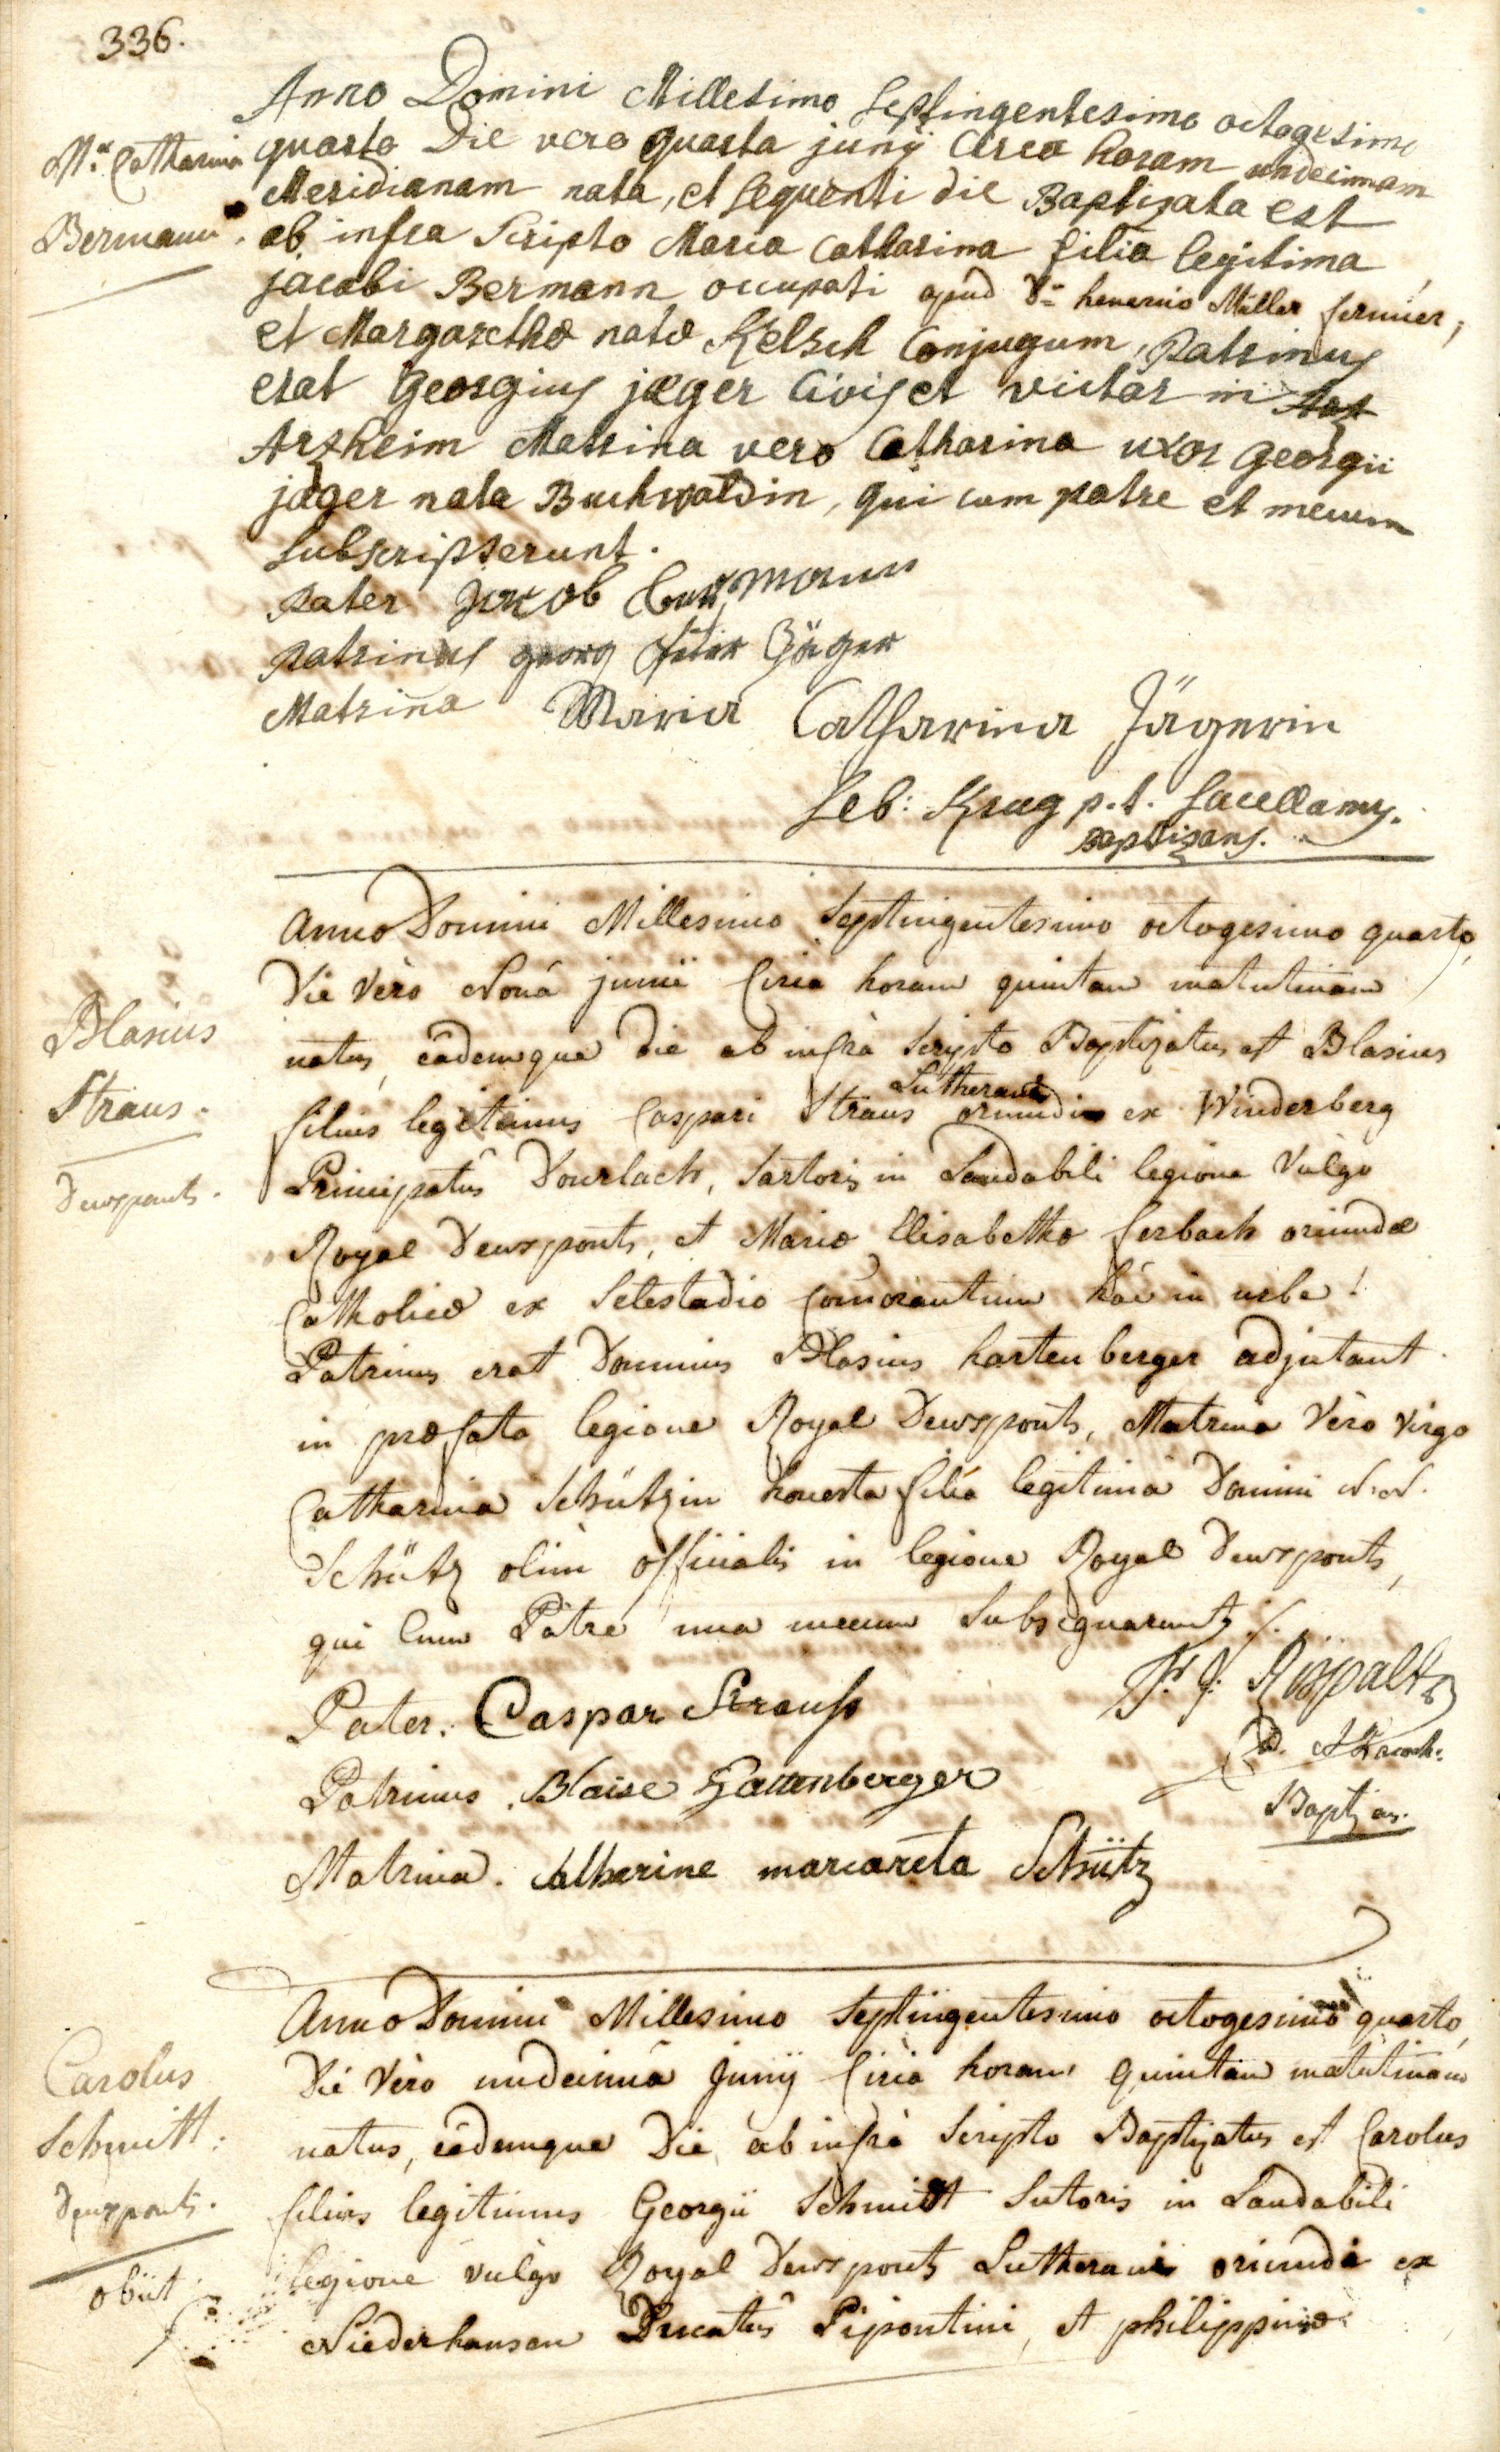 336.
Anno Domini Millesimo Septingentesimo octogesimo
quarto Die vero quarta junÿ circa horam undecimam
Meridianam nata, et sequenti die Baptizata est
ab infra scripto Maria Catharina filia legitima
jacobi Bermann occupati apud Dno henerico Müller fermier,
et Margarethæ natæ Kelsch Conjugum, Patrinus
erat Georgius jæger Civis et victor in Arz
Arzheim Matrina vero Catharina uxor Georgii
jæger nata Buchwaldin, qui cum patre et mecum
subscripserunt.
Mª. Catharina
Bermann.
Pater Jakob Bermann
Patrinus georg Jäger
Matrina Maria Catharina Jägerin
Seb: Krug p.t. Sacellanus.
Baptizans.
Anno Domini Millesimo Septingentesimo octogesimo quarto,
Die Vèro Nonâ junii Circa horam quintam matutinam
natus, eâdemque die ab infrà Scripto Baptizatus est Blasius
filius legitimus Caspari Straus Lutherani oriundi ex Winderberg
Principatûs Dourlach, Sartoris in Laudabili legione Vulgo
Royal Deuxponts, et Mariæ Elisabethæ ferbach oriundæ
Catholicæ ex Selestadio Com̄orantium hâc in urbe!
Patrinus erat Dominus Blasius hartenberger adjutant
in præfata legione Royal Deuxponts, Matrina Vèro Virgo
Catharina Schützin honesta filia legitima Domini N.N.
Schütz olim officialis in legione Royal Deuxponts,
qui Cum Patre una mecum Subsignarunt
Blasius
Straus.
Deuxponts.
Pater. Caspar Strauß
Patrinus. Blaise Hartenberger
Matrina. Catherine marcareta Schütz
Rispaltz
Baptizans.
Anno Domini Millesimo Septingentesimo octogesimo quarto,
Die Vèro undecimâ Junÿ Circa horam quintam matutinam
natus, eâdemque Die, ab infrà Scripto Baptizatus est Carolus
filius legitimus Georgii Schmidt Sutoris in Laudabili
legione vulgo Royal Deuxponts Lutherani oriundi ex
Niederhausen Ducatûs Bipontini, et philippinæ
Carolus
Schmitt.
Deuxponts.
obiit.